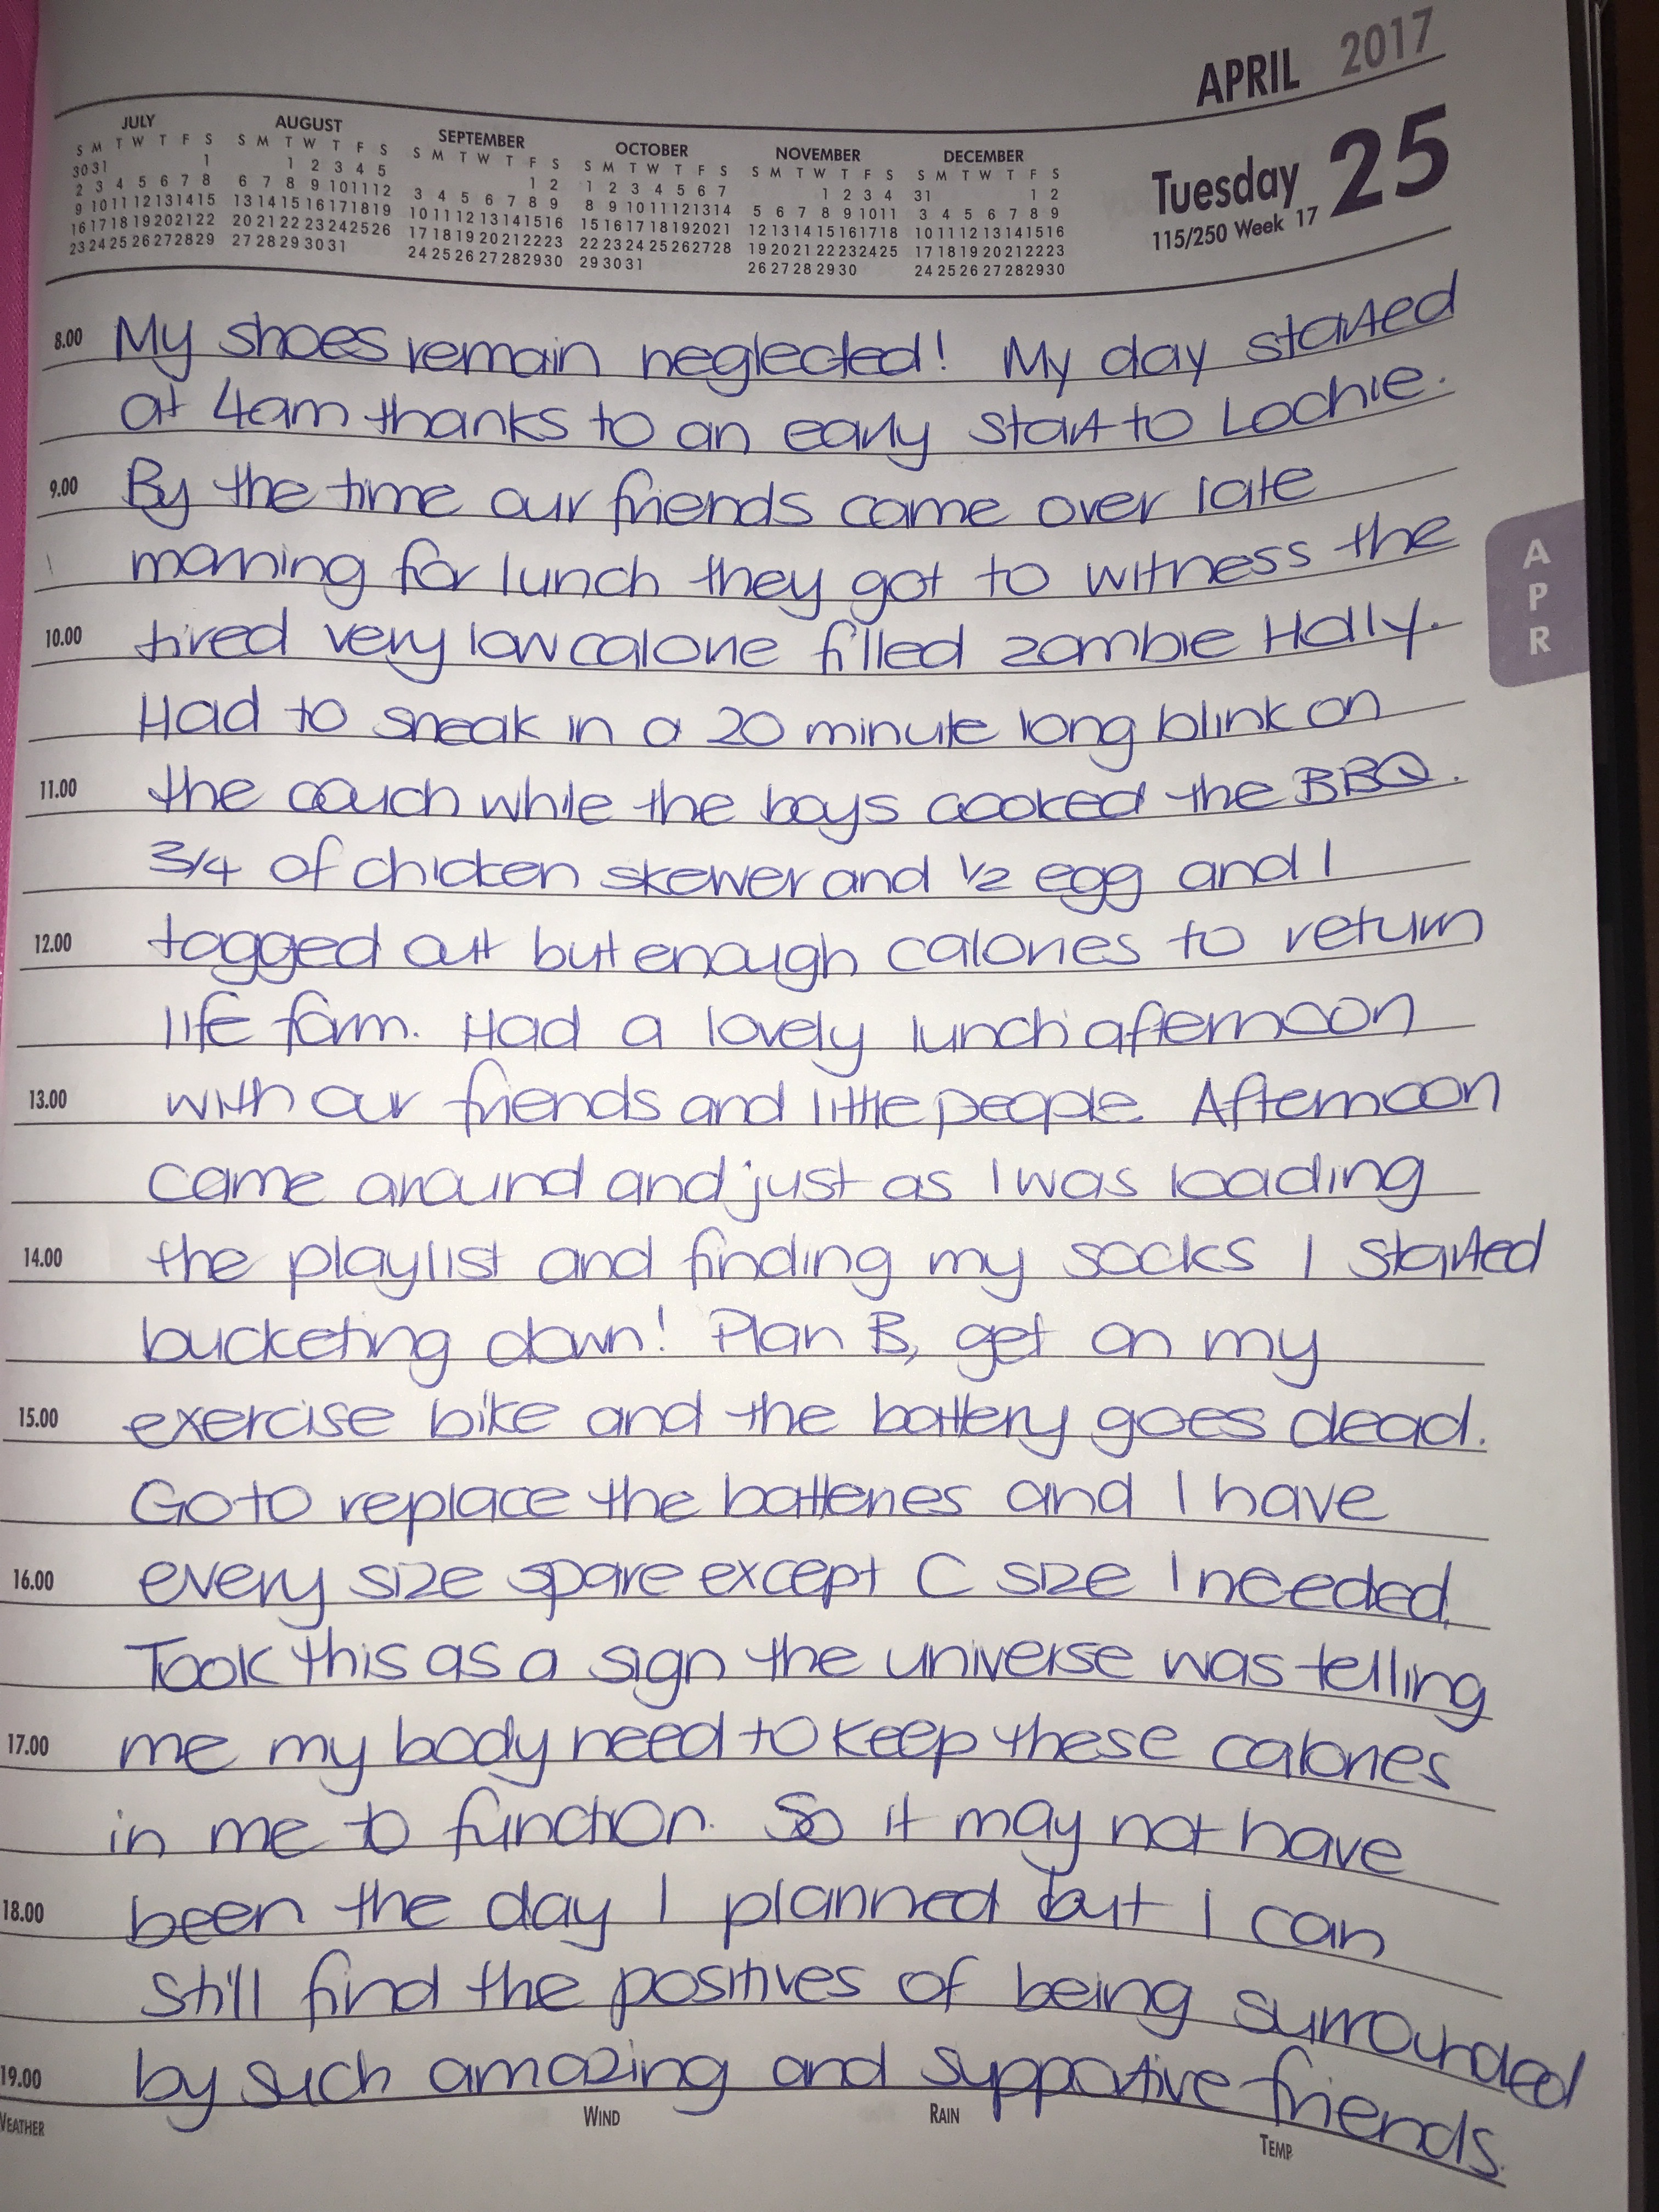 APRIL 2017
Tuesday 25
115/250 Week 17
JULY
S M T W T F S
30 31 1
2 3 4 5 6 7 8
9 10 11 12 13 14 15
16 17 18 19 20 21 22
23 24 25 26 27 28 29
AUGUST
S M T W T F S
1 2 3 4 5
6 7 8 9 10 11 12
13 14 15 16 17 18 19
20 21 22 23 24 25 26
27 28 29 30 31
SEPTEMBER
S M T W T F S
1 2
3 4 5 6 7 8 9
10 11 12 13 14 15 16
17 18 19 20 21 22 23
24 25 26 27 28 29 30
OCTOBER
S M T W T F S
1 2 3 4 5 6 7
8 9 10 11 12 13 14
15 16 17 18 19 20 21
22 23 24 25 26 27 28
29 30 31
NOVEMBER
S M T W T F S
1 2 3 4
5 6 7 8 9 10 11
12 13 14 15 16 17 18
19 20 21 22 23 24 25
26 27 28 29 30
DECEMBER
S M T W T F S
31 1 2
3 4 5 6 7 8 9
10 11 12 13 14 15 16
17 18 19 20 21 22 23
24 25 26 27 28 29 30
8.00 My shoes remain neglected! My day started
at 4am thanks to an early start to Lochie.
9.00 By the time our friends came over late
morning for lunch they got to witness the
10.00 tired very low calorie filled zombie Holly.
Had to sneak in a 20 minute long blink on
11.00 the couch while the boys cooked the BBQ.
3/4 of chicken skewer and 1/2 egg and I
12.00 tagged out but enough calories to return
life form. Had a lovely lunch afternoon
13.00 with our friends and little people. Afternoon
came around and just as I was loading
14.00 the playlist and finding my socks I started
bucketing down! Plan B, get on my
15.00 exercise bike and the battery goes dead.
Go to replace the batteries and I have
16.00 every size spare except C size I needed.
Took this as a sign the universe was telling
17.00 me my body need to keep these calories
in me to function. So it may not have
18.00 been the day I planned but I can
still find the positives of being surrounded
19.00 by such amazing and supportive friends.
WEATHER WIND RAIN TEMP
APR